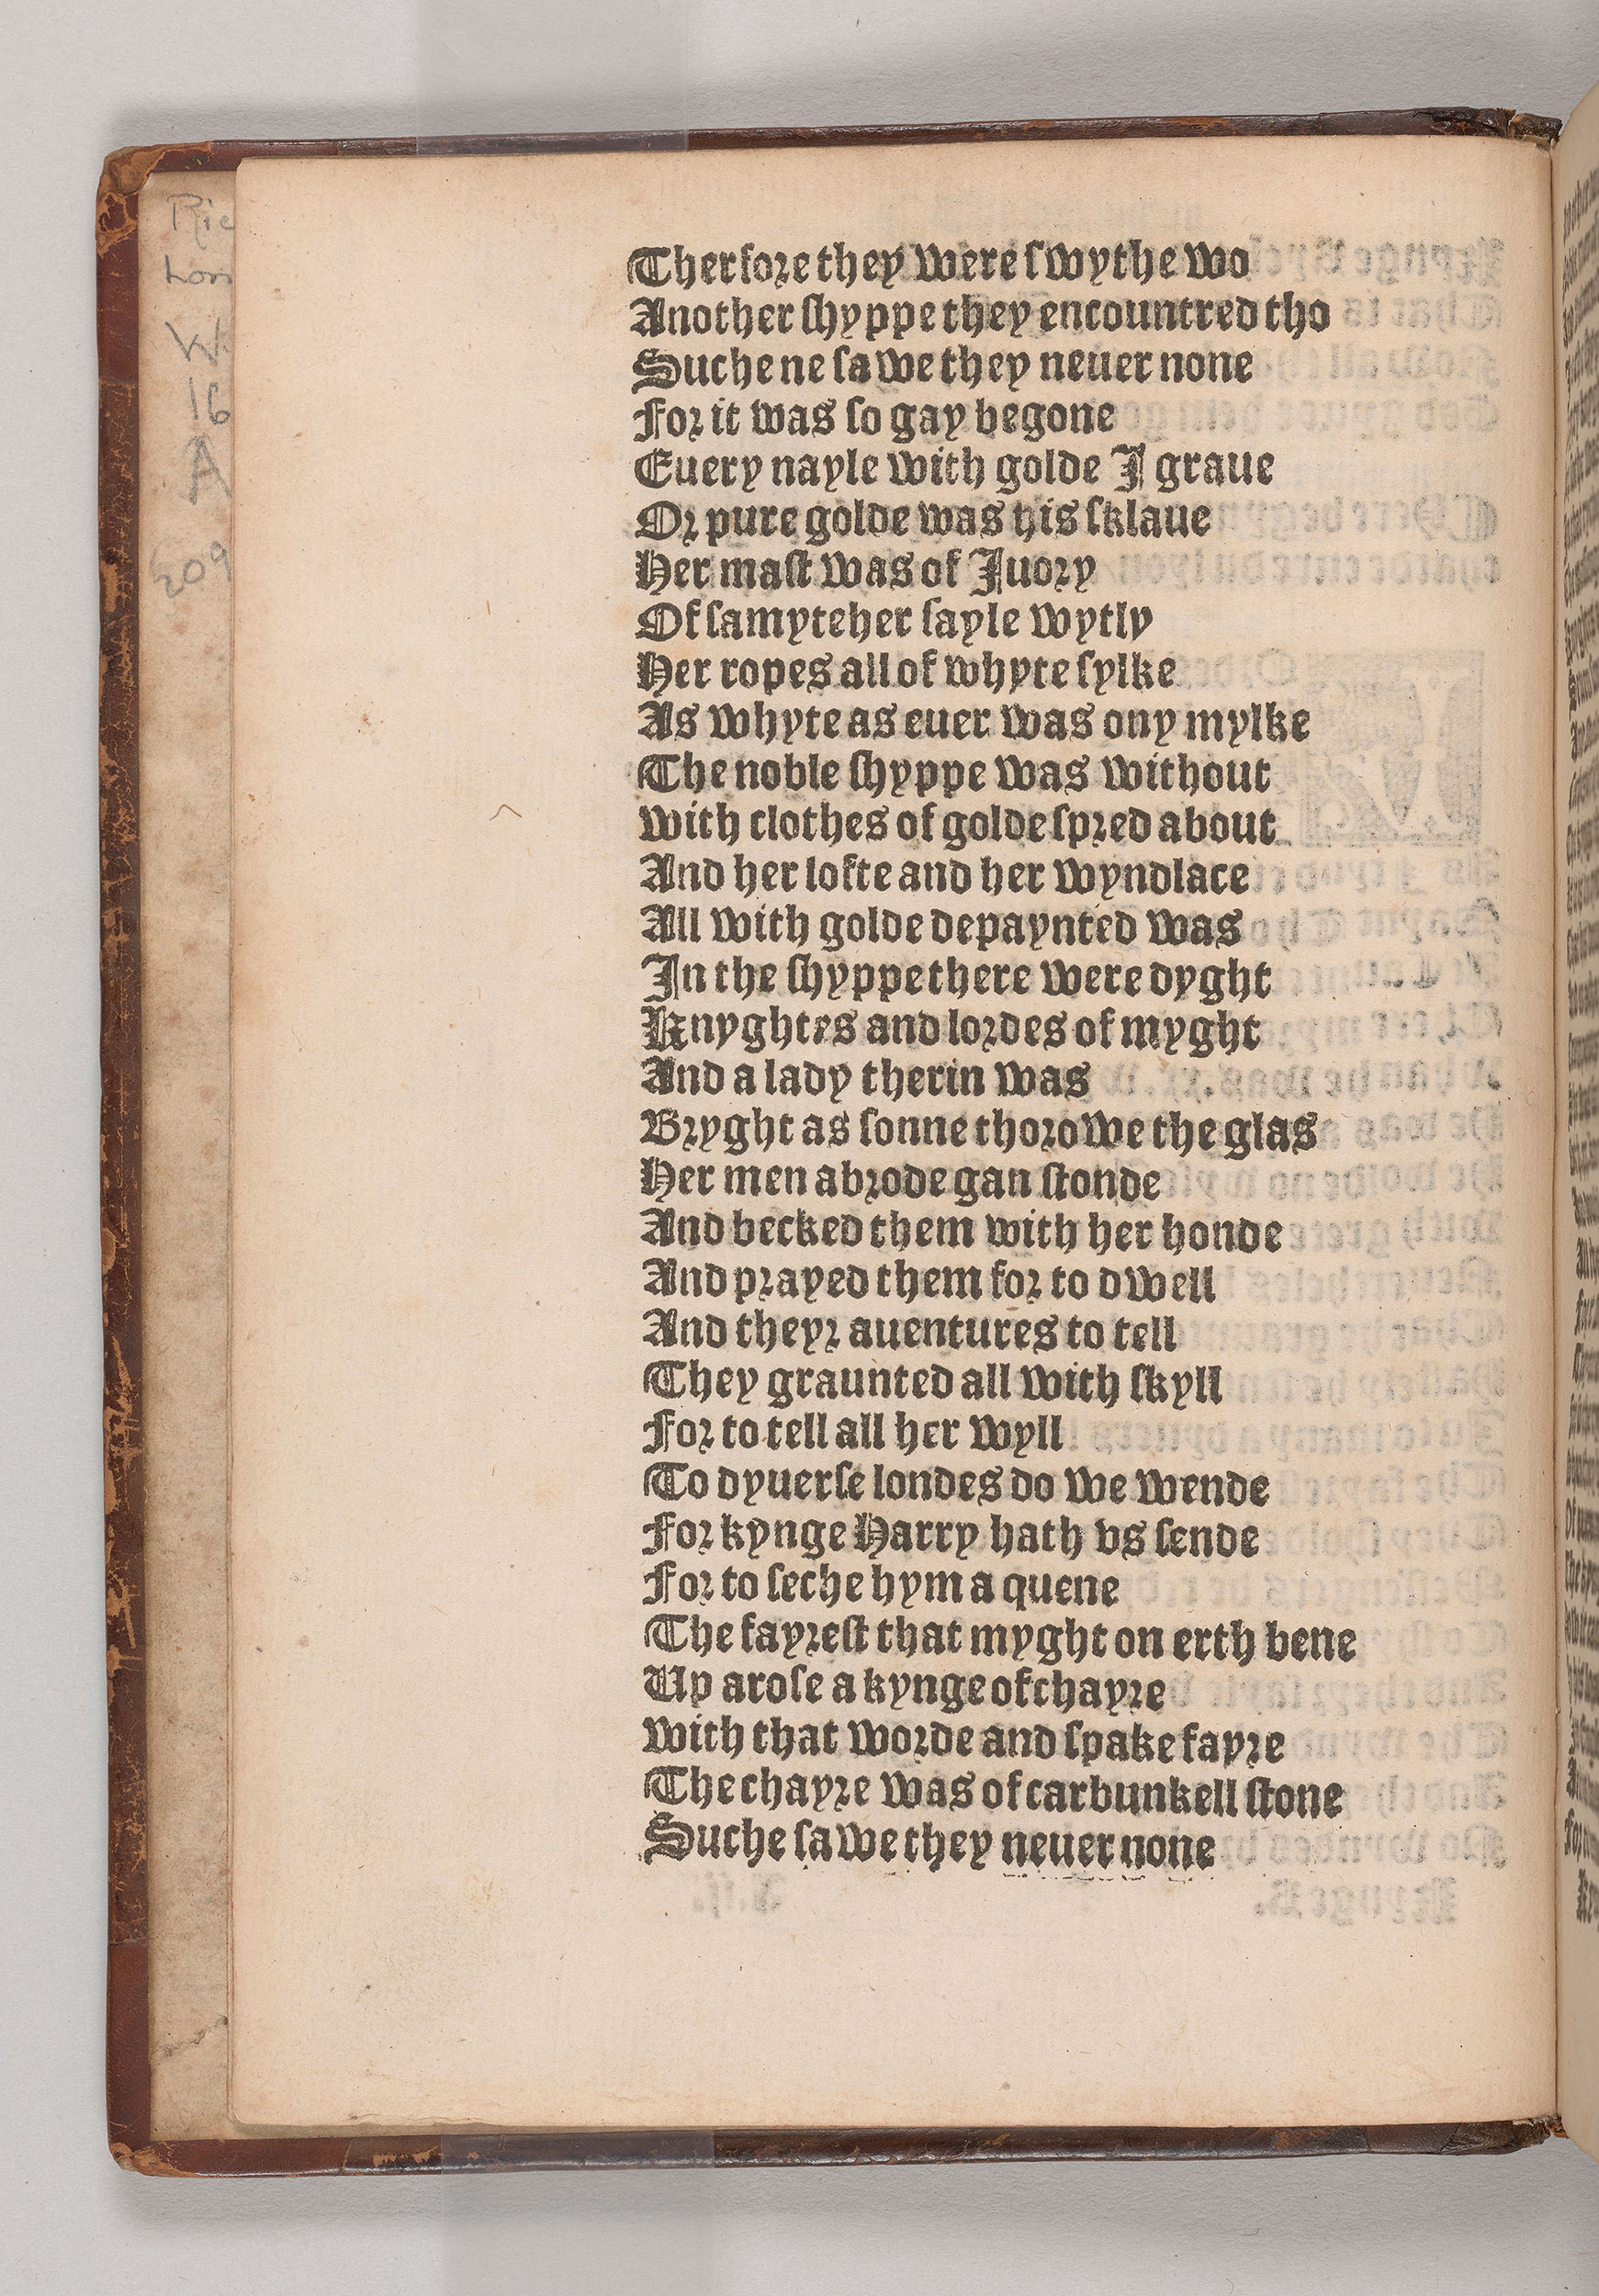 Therfore they were swythe wo
Another shyppe they encountred tho
Suche ne sawe they neuer none
For it was so gay begone
Euery nayle with golde I graue
Or pure golde was his sklaue
Her mast was of Iuory
Of samyte her sayle wytly
Her ropes all of whyte sylke
As whyte as euer was ony mylke
The noble shyppe was without
with clothes of golde spred about
And her lofte and her wyndlace
All with golde depaynted was
In the shyppe there were dyght
Knyghtes and lordes of myght
And a lady therin was
Bryght as sonne thorowe the glas
Her men abrode gan stonde
And becked them with her honde
And prayed them for to dwell
And theyr auentures to tell
They graunted all with skyll
For to tell all her wyll
To dyuerse londes do we wende
For kynge Harry hath vs sende
For to seche hym a quene
The fayrest that myght on erth bene
Up arose a kynge of chayre
with that worde and spake fayre
The chayre was of carbunkell stone
Suche sawe they neuer none
Ric
Lon
W
16
A